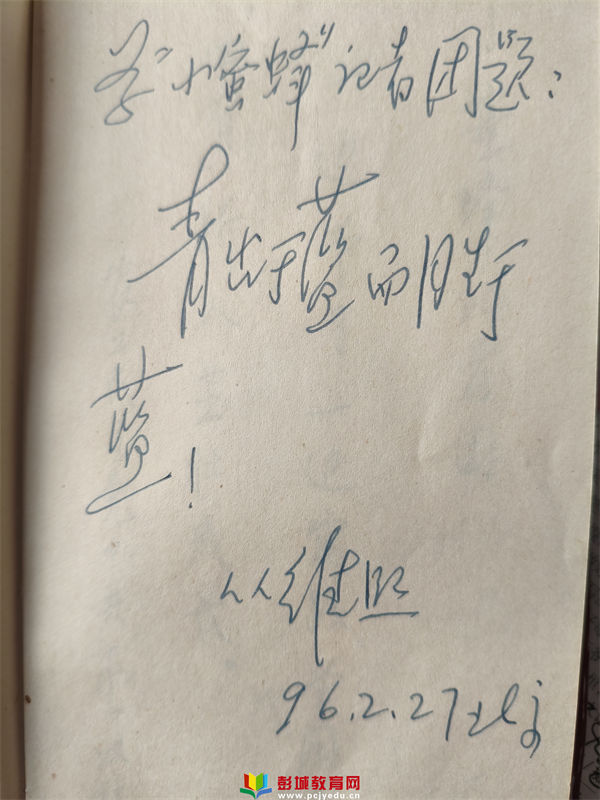 为“小蜜蜂”记者团题：
青出于蓝而胜于
蓝！
从维熙
96.2.27北京
彭城教育网
www.pcjyedu.cn